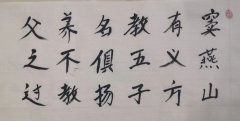 窦燕山
有义方
教五子
名俱扬
养不教
父之过